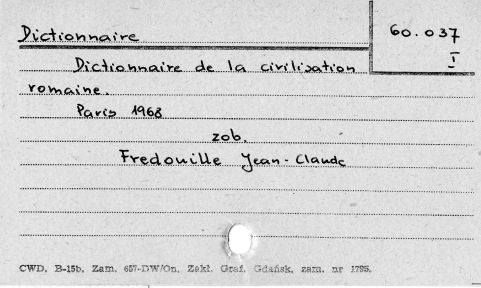 Dictionnaire
60.037
I
Dictionnaire de la civilisation
romaine.
Paris 1968
zob.
Fredouille Jean-Claude
CWD. B-15b. Zam. 657-DW/On. Zakł. Graf. Gdańsk, zam. nr 1795.